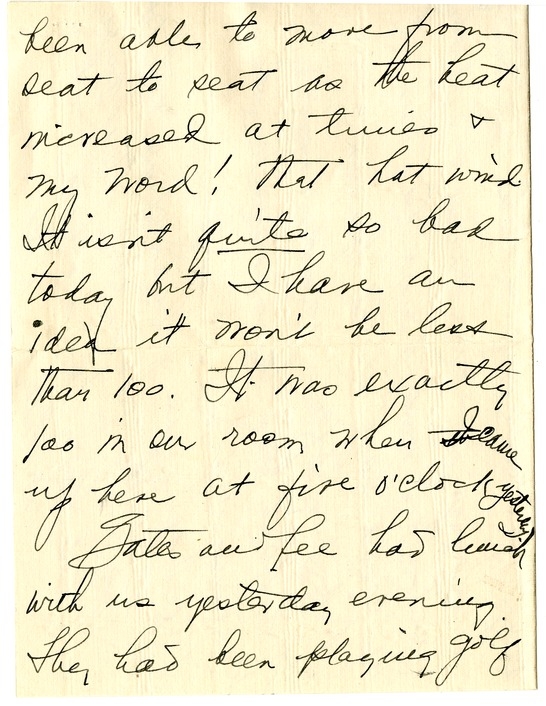 been able to move from
seat to seat as the heat
increased at times &
my word! that hot wind
It isn't quite so bad
today but I have an
idea it won't be less
than 100. It was exactly
100 in our room when I came
up here at five o'clock yesterday
Gates and Lee had lunch
with us yesterday evening.
They had been playing golf